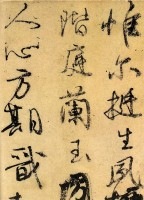 惟尔挺生夙
階庭蘭玉
人心方期戩